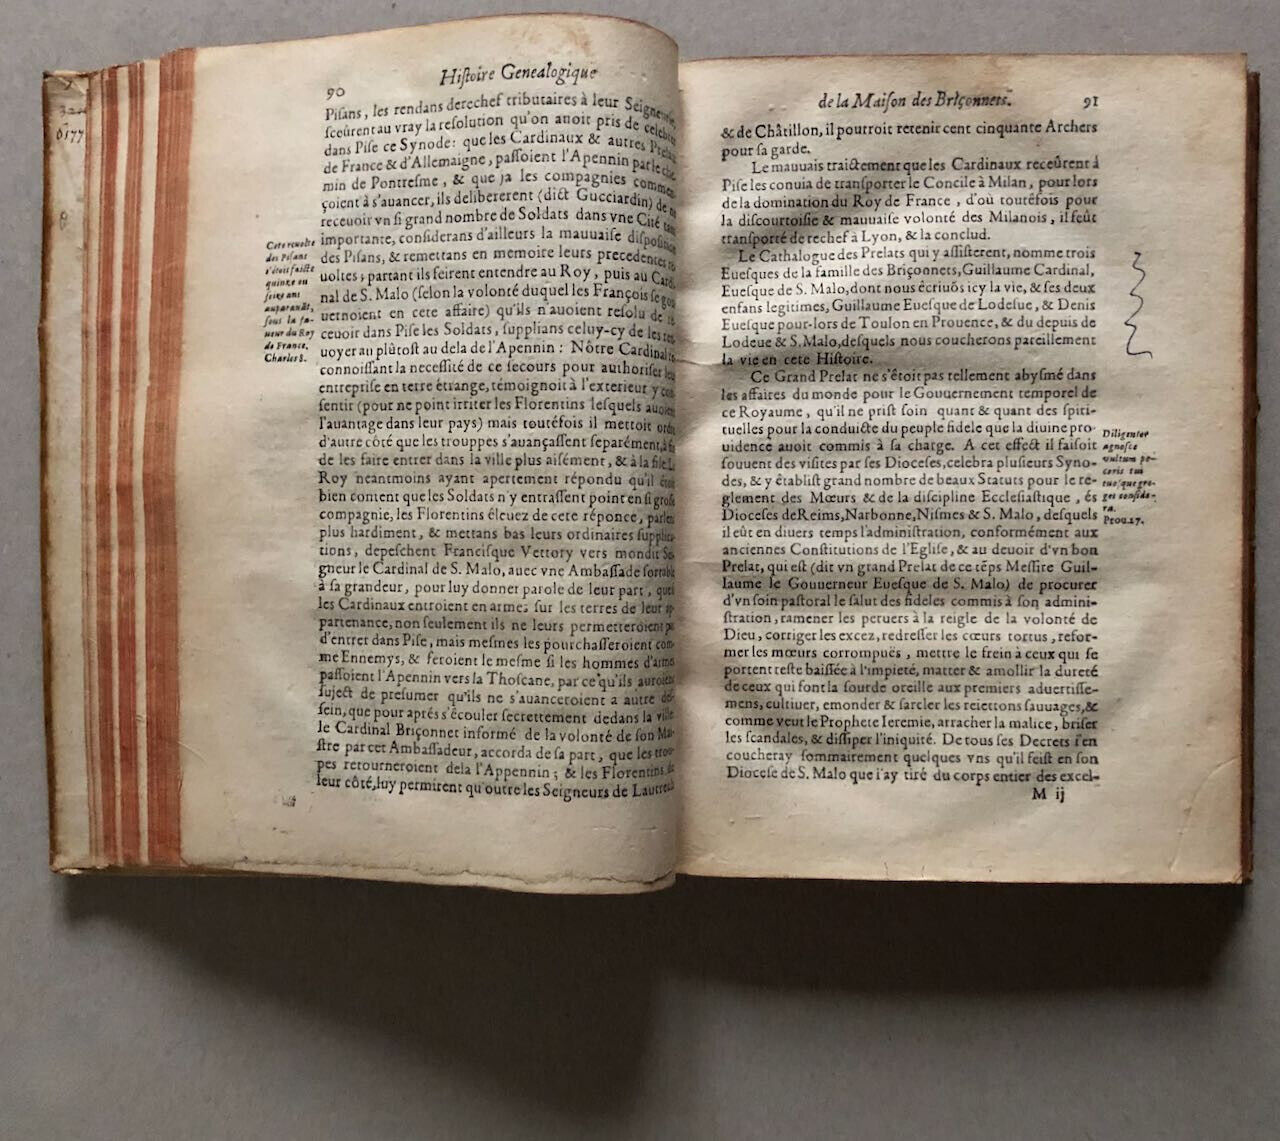 6177
8
90
Hiſtoire Genealogique
Piſans, les rendans derechef tributaires à leur Seigneurie,
ſceûrent au vray la reſolution qu'on auoit pris de celebrer
dans Piſe ce Synode: que les Cardinaux & autres Prelats
de France & d'Allemaigne, paſſoient l'Apennin par le che
min de Pontreſme, & que ja les compagnies commen
çoient à s'auancer, ils delibererent (dict Gucciardin) de ne
receuoir vn ſi grand nombre de Soldats dans vne Cité tant
importante, conſiderans d'ailleurs la mauuaiſe diſpoſition
des Piſans, & remettans en memoire leurs precedentes re
uoltes; partant ils feirent entendre au Roy, puis au Cardi
nal de S. Malo (ſelon la volonté duquel les François ſe gou
uernoient en cete affaire) qu'ils n'auoient reſolu de re
ceuoir dans Piſe les Soldats, ſupplians celuy-cy de les ren
uoyer au plûtoſt au dela de l'Apennin: Nôtre Cardinal re
connoiſſant la neceſſité de ce ſecours pour authoriſer leur
entrepriſe en terre étrange, témoignoit à l'exterieur y con
ſentir (pour ne point irriter les Florentins leſquels auoient
l'auantage dans leur pays) mais toutéfois il mettoit ordre
d'autre côté que les trouppes s'auançaſſent ſeparément, à fin
de les faire entrer dans la ville plus aiſément, & à la file. Le
Roy neantmoins ayant apertement répondu qu'il étoit
bien content que les Soldats n'y entraſſent point en ſi groſſe
compagnie, les Florentins éleuez de cete réponce, parlent
plus hardiment, & mettans bas leurs ordinaires ſupplica
tions, depeſchent Franciſque Vettory vers mondit Sei
gneur le Cardinal de S. Malo, auec vne Ambaſſade ſortable
à ſa grandeur, pour luy donner parole de leur part, que ſi
les Cardinaux entroient en armes ſur les terres de leur ap
partenance, non ſeulement ils ne leurs permetteroient pas
d'entrer dans Piſe, mais meſmes les pourchaſſeroient com
me Ennemys, & feroient le meſme ſi les hommes d'armes
paſſoient l'Apennin vers la Thoſcane, par ce qu'ils auroient
ſuject de preſumer qu'ils ne s'auanceroient a autre deſ
ſein, que pour aprés s'écouler ſecrettement dedans la ville
le Cardinal Briçonnet informé de la volonté de ſon Mai
ſtre par cet Ambaſſadeur, accorda de ſa part, que les trou
pes retourneroient dela l'Appennin; & les Florentins de
leur côté, luy permirent qu'outre les Seigneurs de Lautrech
Cete reuolte
des Piſans
s'étoit faicte
quinze ou
ſeize ans
auparauāt,
ſous la fa-
ueur du Roy
de France,
Charles 8.
de la Maiſon des Briçonnets.
91
& de Châtillon, il pourroit retenir cent cinquante Archers
pour ſa garde.
Le mauuais traictement que les Cardinaux receûrent à
Piſe les conuia de tranſporter le Concile à Milan, pour lors
de la domination du Roy de France, d'où toutéfois pour
la diſcourtoiſie & mauuaiſe volonté des Milanois, il feût
tranſporté de rechef à Lyon, & la conclud.
Le Cathalogue des Prelats qui y aſſiſterent, nomme trois
Eueſques de la famille des Briçonnets, Guillaume Cardinal,
Eueſque de S. Malo, dont nous écriuõs icy la vie, & ſes deux
enfans legitimes, Guillaume Eueſque de Lodeſue, & Denis
Eueſque pour-lors de Toulon en Prouence, & du depuis de
Lodeue & S. Malo, deſquels nous coucherons pareillement
la vie en cete Hiſtoire.
Ce Grand Prelat ne s'étoit pas tellement abyſmé dans
les affaires du monde pour le Gouuernement temporel de
ce Royaume, qu'il ne priſt ſoin quant & quant des ſpiri-
tuelles pour la conduicte du peuple fidele que la diuine pro-
uidence auoit commis à ſa charge. A cet effect il faiſoit
ſouuent des viſites par ſes Dioceſes, celebra pluſieurs Syno-
des, & y établiſt grand nombre de beaux Statuts pour le re-
glement des Mœurs & de la diſcipline Eccleſiaſtique, és
Dioceſes de Reims, Narbonne, Niſmes & S. Malo, deſquels
il eût en diuers temps l'adminiſtration, conformément aux
anciennes Conſtitutions de l'Egliſe, & au deuoir d'vn bon
Prelat, qui eſt (dit vn grand Prelat de ce tẽps Meſſire Guil-
laume le Gouuerneur Eueſque de S. Malo) de procurer
d'vn ſoin paſtoral le ſalut des fideles commis à ſon admini-
ſtration, ramener les peruers à la reigle de la volonté de
Dieu, corriger les excez, redreſſer les cœurs tortus, refor-
mer les mœurs corrompuës, mettre le frein à ceux qui ſe
portent teſte baiſſée à l'impieté, matter & amollir la dureté
de ceux qui font la ſourde oreille aux premiers aduertiſſe-
mens, cultiuer, emonder & ſarcler les reiettons ſauuages, &
comme veut le Prophete Ieremie, arracher la malice, briſer
les ſcandales, & diſſiper l'iniquité. De tous ſes Decrets i'en
coucheray ſommairement quelques vns qu'il feiſt en ſon
Dioceſe de S. Malo que i'ay tiré du corps entier des excel-
M ij
Diligenter
agnoſce
vultum pe-
coris tui
tuoſque gre-
ges conſide-
ra.
Prou. 27.